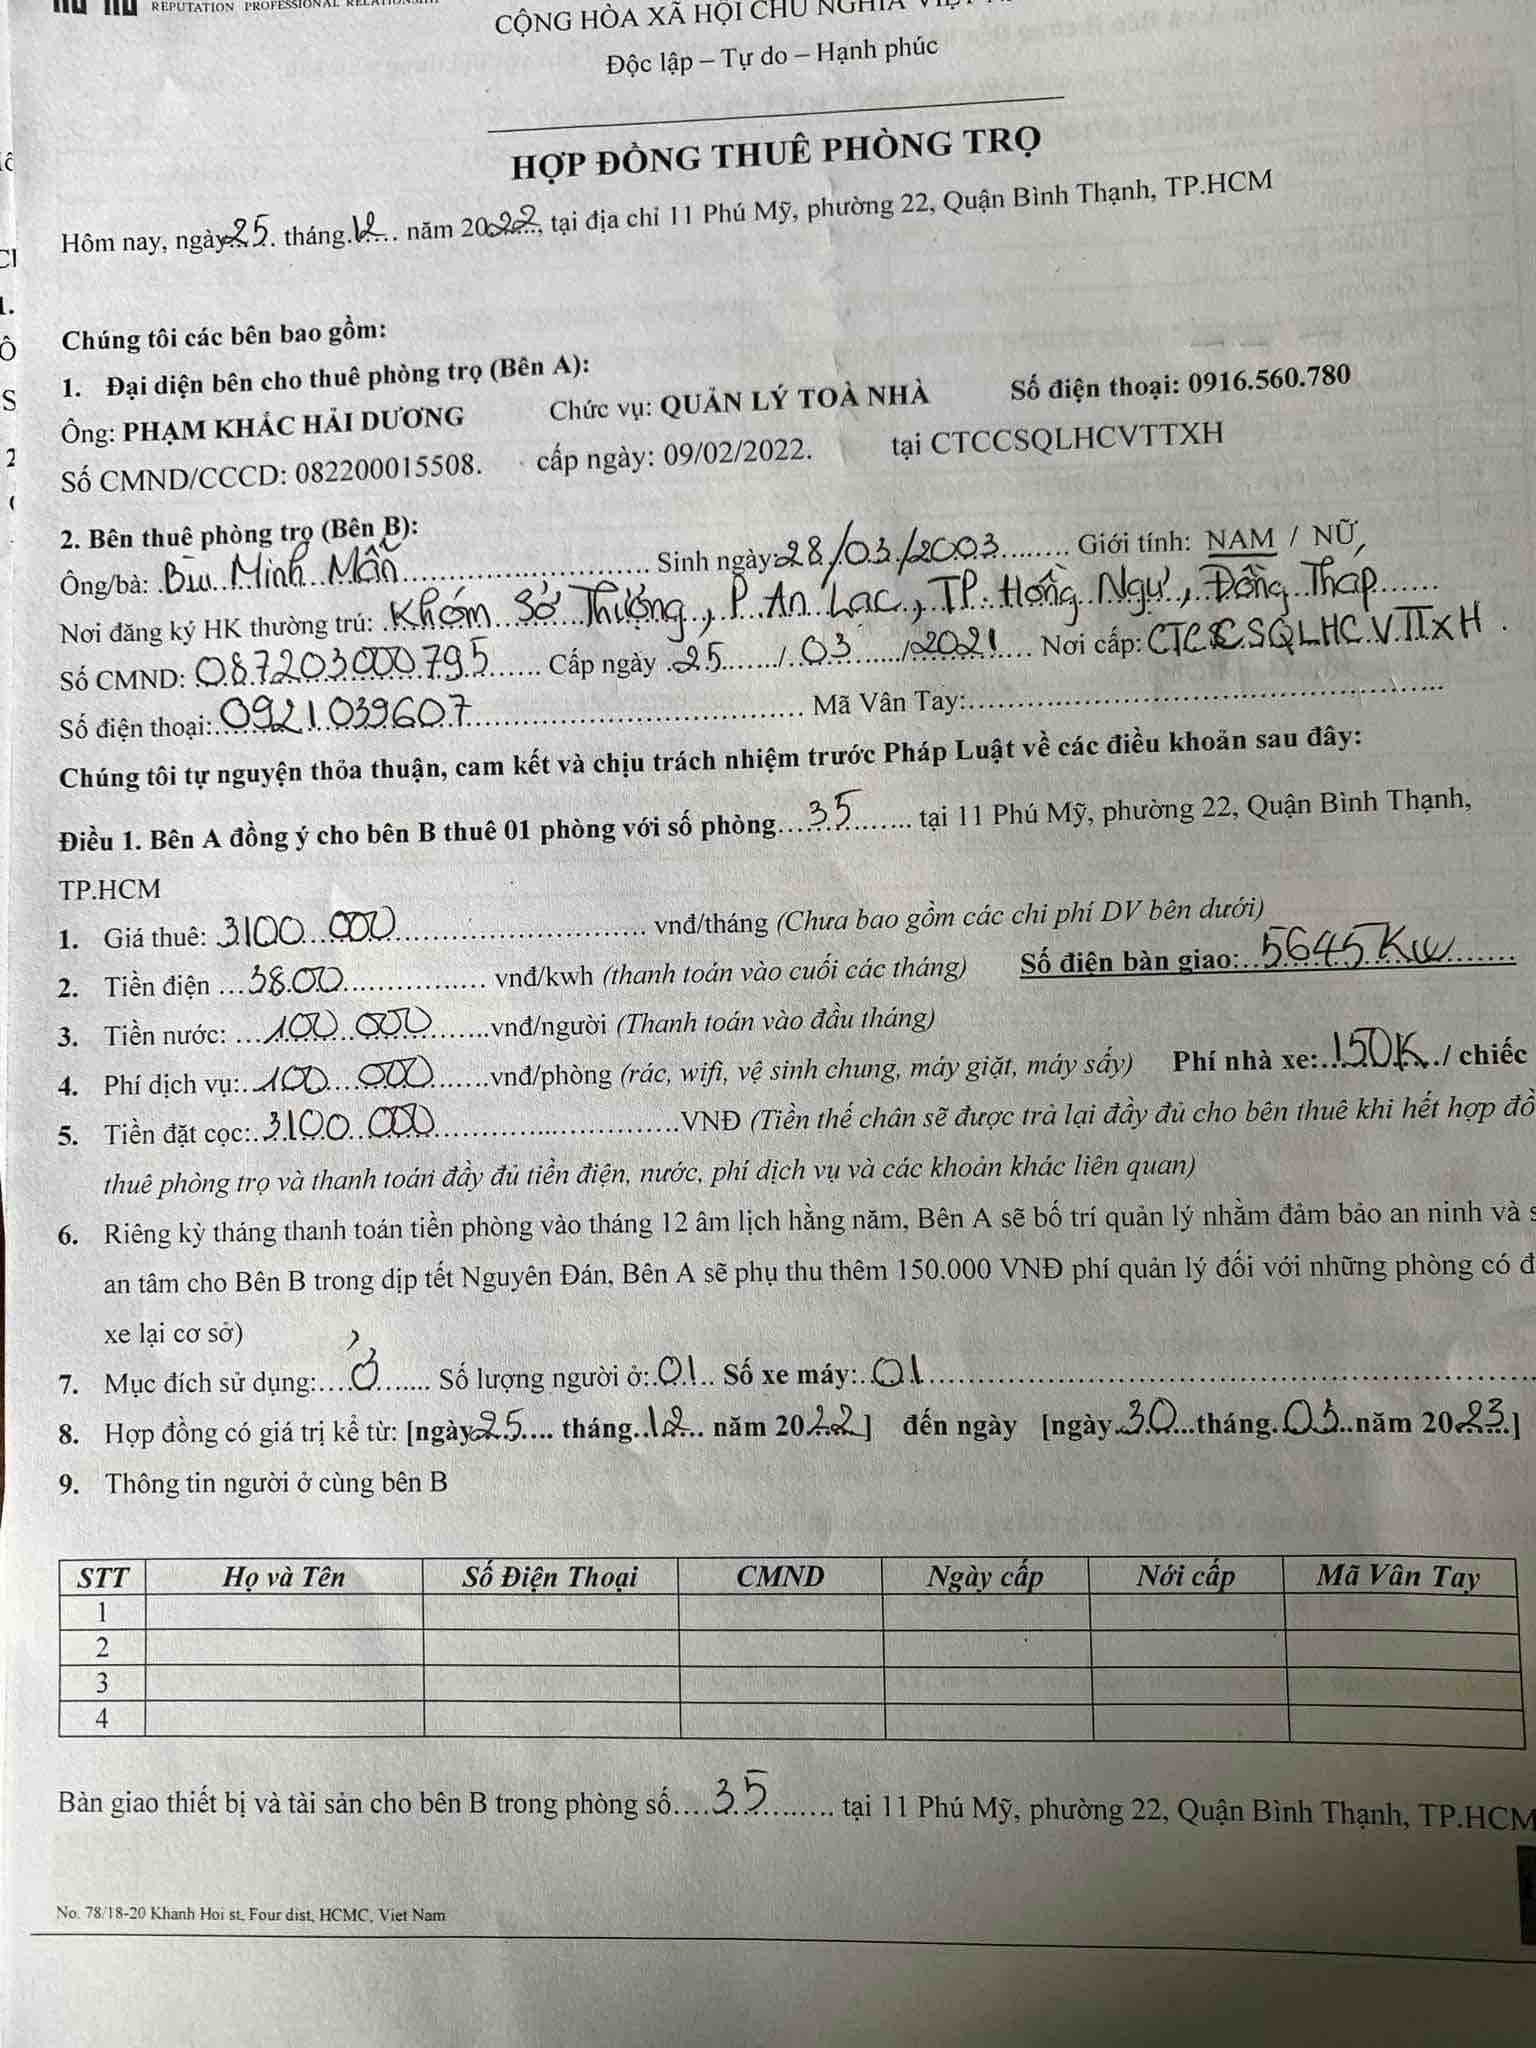 REPUTATION PROFESSIONAL
CỘNG HÒA XÃ HỘI CHỦ NGHĨA
Độc lập – Tự do – Hạnh phúc
HỢP ĐỒNG THUÊ PHÒNG TRỌ
Hôm nay, ngày 25. tháng 12 năm 2022, tại địa chỉ 11 Phú Mỹ, phường 22, Quận Bình Thạnh, TP.HCM
Chúng tôi các bên bao gồm:
1. Đại diện bên cho thuê phòng trọ (Bên A):
Ông: PHẠM KHẮC HẢI DƯƠNG Chức vụ: QUẢN LÝ TOÀ NHÀ Số điện thoại: 0916.560.780
Số CMND/CCCD: 082200015508. cấp ngày: 09/02/2022. tại CTCCSQLHCVTTXH
2. Bên thuê phòng trọ (Bên B):
Ông/bà: Bùi Minh Mẫn Sinh ngày: 28/03/2003 Giới tính: NAM / NỮ
Nơi đăng ký HK thường trú: Khóm Sở Thượng, P. An Lạc, TP. Hồng Ngự, Đồng Tháp
Số CMND: 087203000795 Cấp ngày 25/03/2021 Nơi cấp: CTCCSQLHCVTTXH.
Số điện thoại: 0921039607 Mã Vân Tay:
Chúng tôi tự nguyện thỏa thuận, cam kết và chịu trách nhiệm trước Pháp Luật về các điều khoản sau đây:
Điều 1. Bên A đồng ý cho bên B thuê 01 phòng với số phòng 35 tại 11 Phú Mỹ, phường 22, Quận Bình Thạnh,
TP.HCM
1. Giá thuê: 3100.000 vnđ/tháng (Chưa bao gồm các chi phí DV bên dưới)
2. Tiền điện 3800 vnđ/kwh (thanh toán vào cuối các tháng) Số điện bàn giao: 5645 Kw
3. Tiền nước: 100.000 vnđ/người (Thanh toán vào đầu tháng)
4. Phí dịch vụ: 100.000 vnđ/phòng (rác, wifi, vệ sinh chung, máy giặt, máy sấy) Phí nhà xe: 150K / chiếc
5. Tiền đặt cọc: 3100.000 VNĐ (Tiền thế chân sẽ được trả lại đầy đủ cho bên thuê khi hết hợp
thuê phòng trọ và thanh toán đầy đủ tiền điện, nước, phí dịch vụ và các khoản khác liên quan)
6. Riêng kỳ tháng thanh toán tiền phòng vào tháng 12 âm lịch hằng năm, Bên A sẽ bố trí quản lý nhằm đảm bảo an ninh và
an tâm cho Bên B trong dịp tết Nguyên Đán, Bên A sẽ phụ thu thêm 150.000 VNĐ phí quản lý đối với những phòng có
xe lại cơ sở)
7. Mục đích sử dụng: ở Số lượng người ở: 01 Số xe máy: 01
8. Hợp đồng có giá trị kể từ: [ngày 25 tháng 12 năm 2022] đến ngày [ngày 30 tháng 03 năm 2023]
9. Thông tin người ở cùng bên B
STT Họ và Tên Số Điện Thoại CMND Ngày cấp Nới cấp Mã Vân Tay
1
2
3
4
Bàn giao thiết bị và tài sản cho bên B trong phòng số 35 tại 11 Phú Mỹ, phường 22, Quận Bình Thạnh, TP.HCM
No. 78/18-20 Khanh Hoi st, Four dist, HCMC, Viet Nam